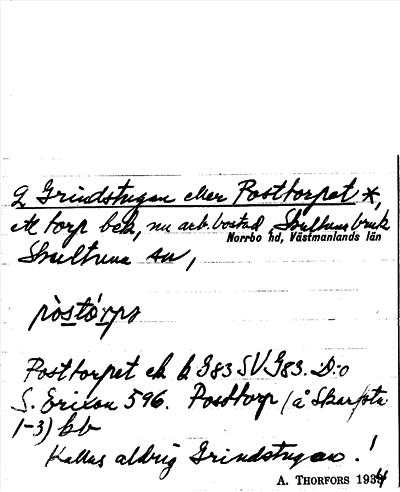 2 Grindstugan eller Posttorpet *,
ett torp beb, nu arb. bostad Skultuna bruk
Norrbo hd, Västmanlands län
Skultuna sn,
pòstórpə
Posttorpet ek b J83 SV J83. D:o
S. Ericson 596. Posttorp (å Skarpsta
1-3) kb
Kallas aldrig Grindstugan!
A. THORFORS 1934